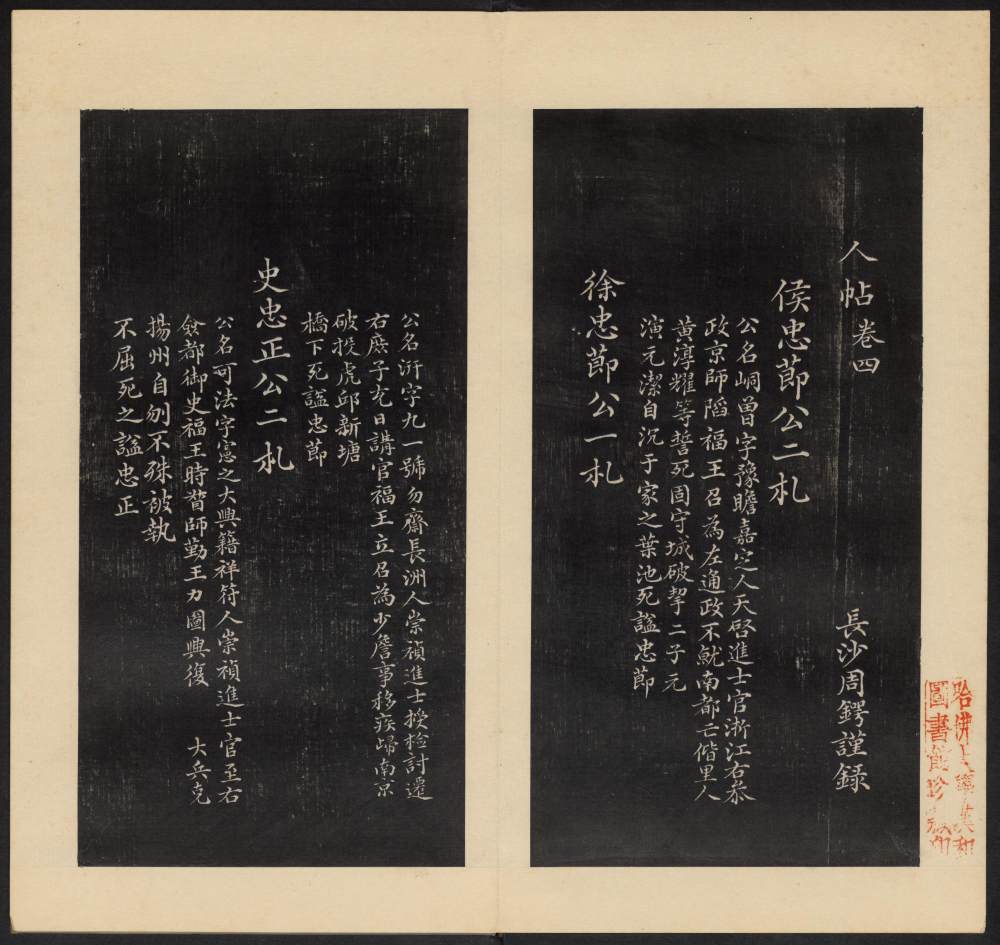 人帖 卷四
長沙周鍔謹録
侯忠節公二札
公名峒曾字豫瞻嘉定人天啓進士官浙江右叅
政京師陷福王召為左通政不就南都亡偕里人
黃淳耀等誓死固守城破挈二子元
演元潔自沉于家之葉池死謚忠節
徐忠節公一札
公名汧字九一號勿齋長洲人崇禎進士授檢討遷
右庶子充日講官福王立召為少詹事移疾歸南京
破投虎邱新塘
橋下死謚忠節
史忠正公二札
公名可法字憲之大興籍祥符人崇禎進士官至右
僉都御史福王時督師勤王力圖興復 大兵克
揚州自刎不殊被執
不屈死之謚忠正
哈佛大學漢和
圖書館珍藏印